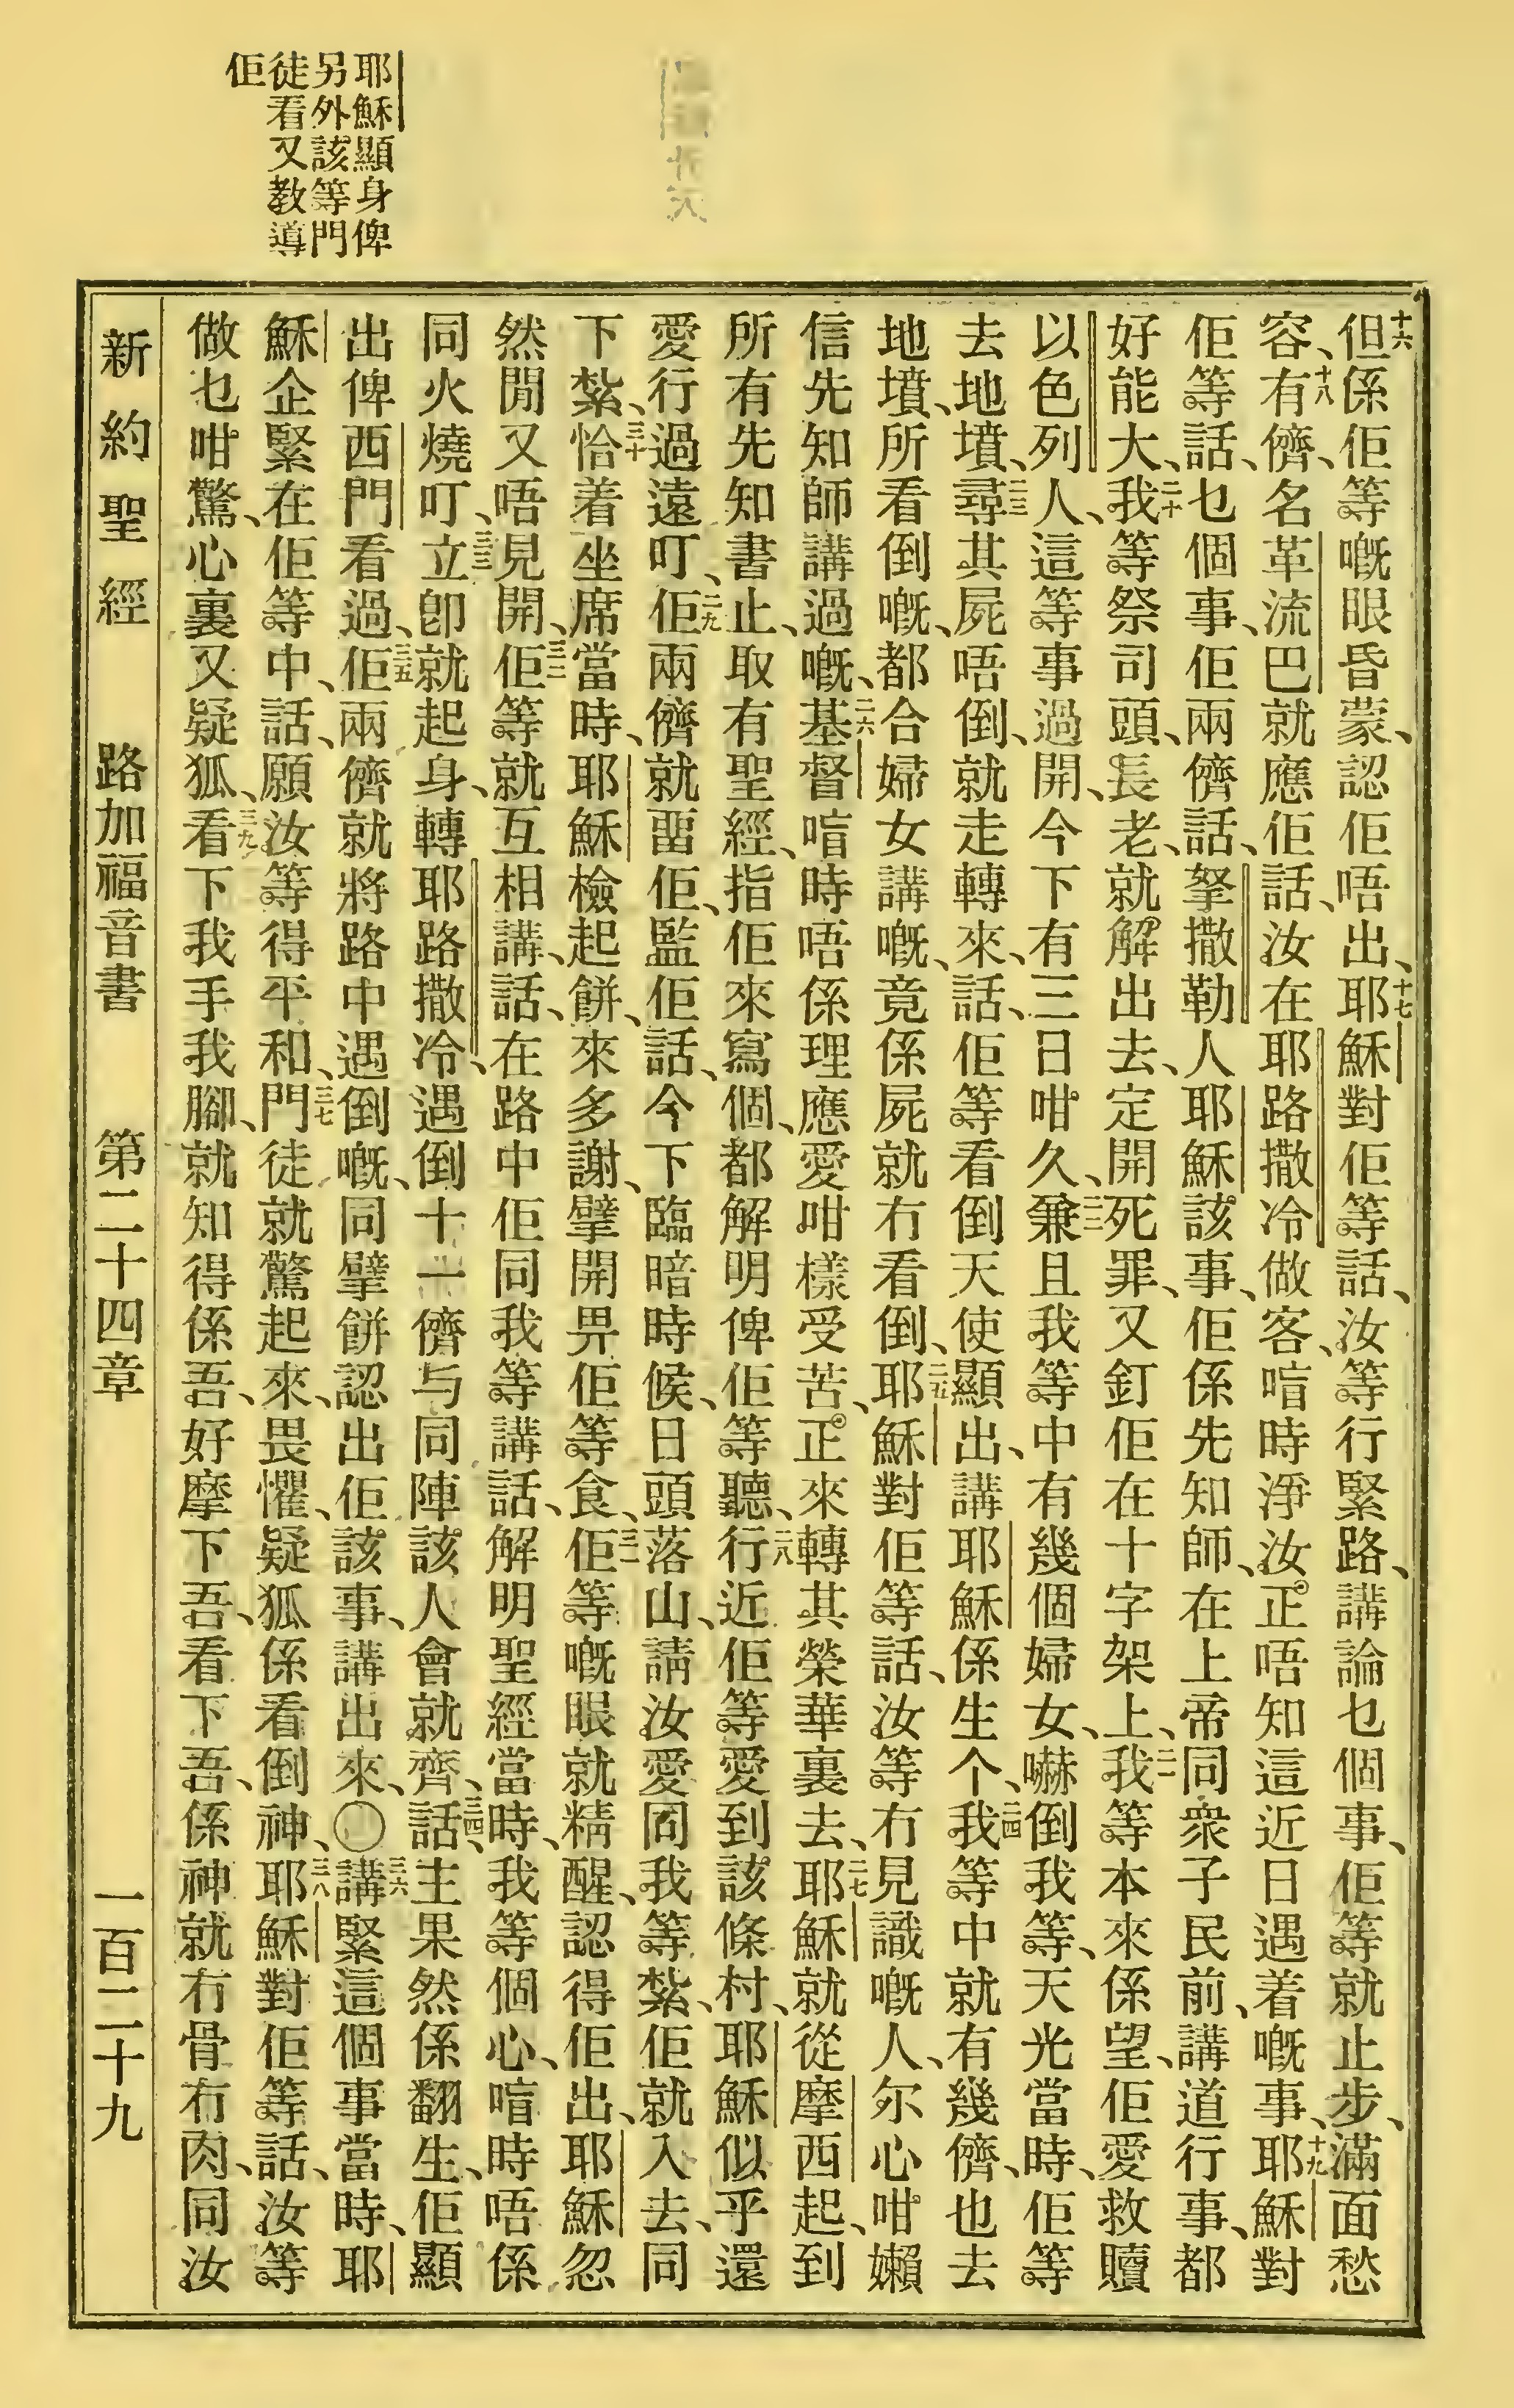 耶穌顯身俾
另外該等門
徒看又教導
佢
十六但係佢等嘅眼昏蒙、認佢唔出、十七耶穌對佢等話、汝等行緊路、講論乜個事、佢等就止步、滿面愁
容、十八有儕、名革流巴就應佢話、汝在耶路撒冷做客、喑時淨汝正唔知這近日遇着嘅事、十九耶穌對
佢等話、乜個事、佢兩儕話、拏撒勒人耶穌該事、佢係先知師、在上帝同衆子民前、講道行事、都
好能大、二十我等祭司頭、長老、就解出去、定開死罪、又釘佢在十字架上、二一我等本來係望、佢愛救贖
以色列人、這等事過開、今下有三日咁久、二二兼且我等中有幾個婦女、嚇倒我等、天光當時、佢等
去地墳、二三尋其屍唔倒、就走轉來、話、佢等看倒天使顯出、講耶穌係生个、二四我等中就有幾儕、也去
地墳、所看倒嘅、都合婦女講嘅、竟係屍就冇看倒、二五耶穌對佢等話、汝等冇見識嘅人、尔心咁嬾
信先知師講過嘅、二六基督喑時唔係理應愛咁樣受苦、正來轉其榮華裏去、二七耶穌就從摩西起、到
所有先知書止、取有聖經、指佢來寫個、都解明俾佢等聽、二八行近佢等愛到該條村、耶穌似乎還
愛行過遠叮、二九佢兩儕就畱佢、監佢話、今下臨暗時候、日頭落山、請汝愛同我等紮、佢就入去、同
下紮、三十恰着坐席當時、耶穌檢起餅、來多謝、擘開畀佢等食、三一佢等嘅眼就精醒、認得佢出、耶穌忽
然閒又唔見開、三二佢等就互相講、話、在路中佢同我等講話、解明聖經當時、我等個心、喑時唔係
同火燒叮、三三立卽就起身、轉耶路撒冷、遇倒十一儕与同陣該人會就齊、三四話、主果然係翻生、佢顯
出俾西門看過、三五佢兩儕就將路中遇倒嘅、同擘餅認出佢該事、講出來、〇三六講緊這個事當時、耶
穌企緊在佢等中、話、願汝等得平和、三七門徒就驚起來、畏懼、疑狐係看倒神、三八耶穌對佢等話、汝等
做乜咁驚、心裏又疑狐、三九看下我手我腳、就知得係吾、好摩下吾、看下吾、係神就冇骨冇肉、同汝
新約聖經　路加福音書　第二十四章　一百二十九